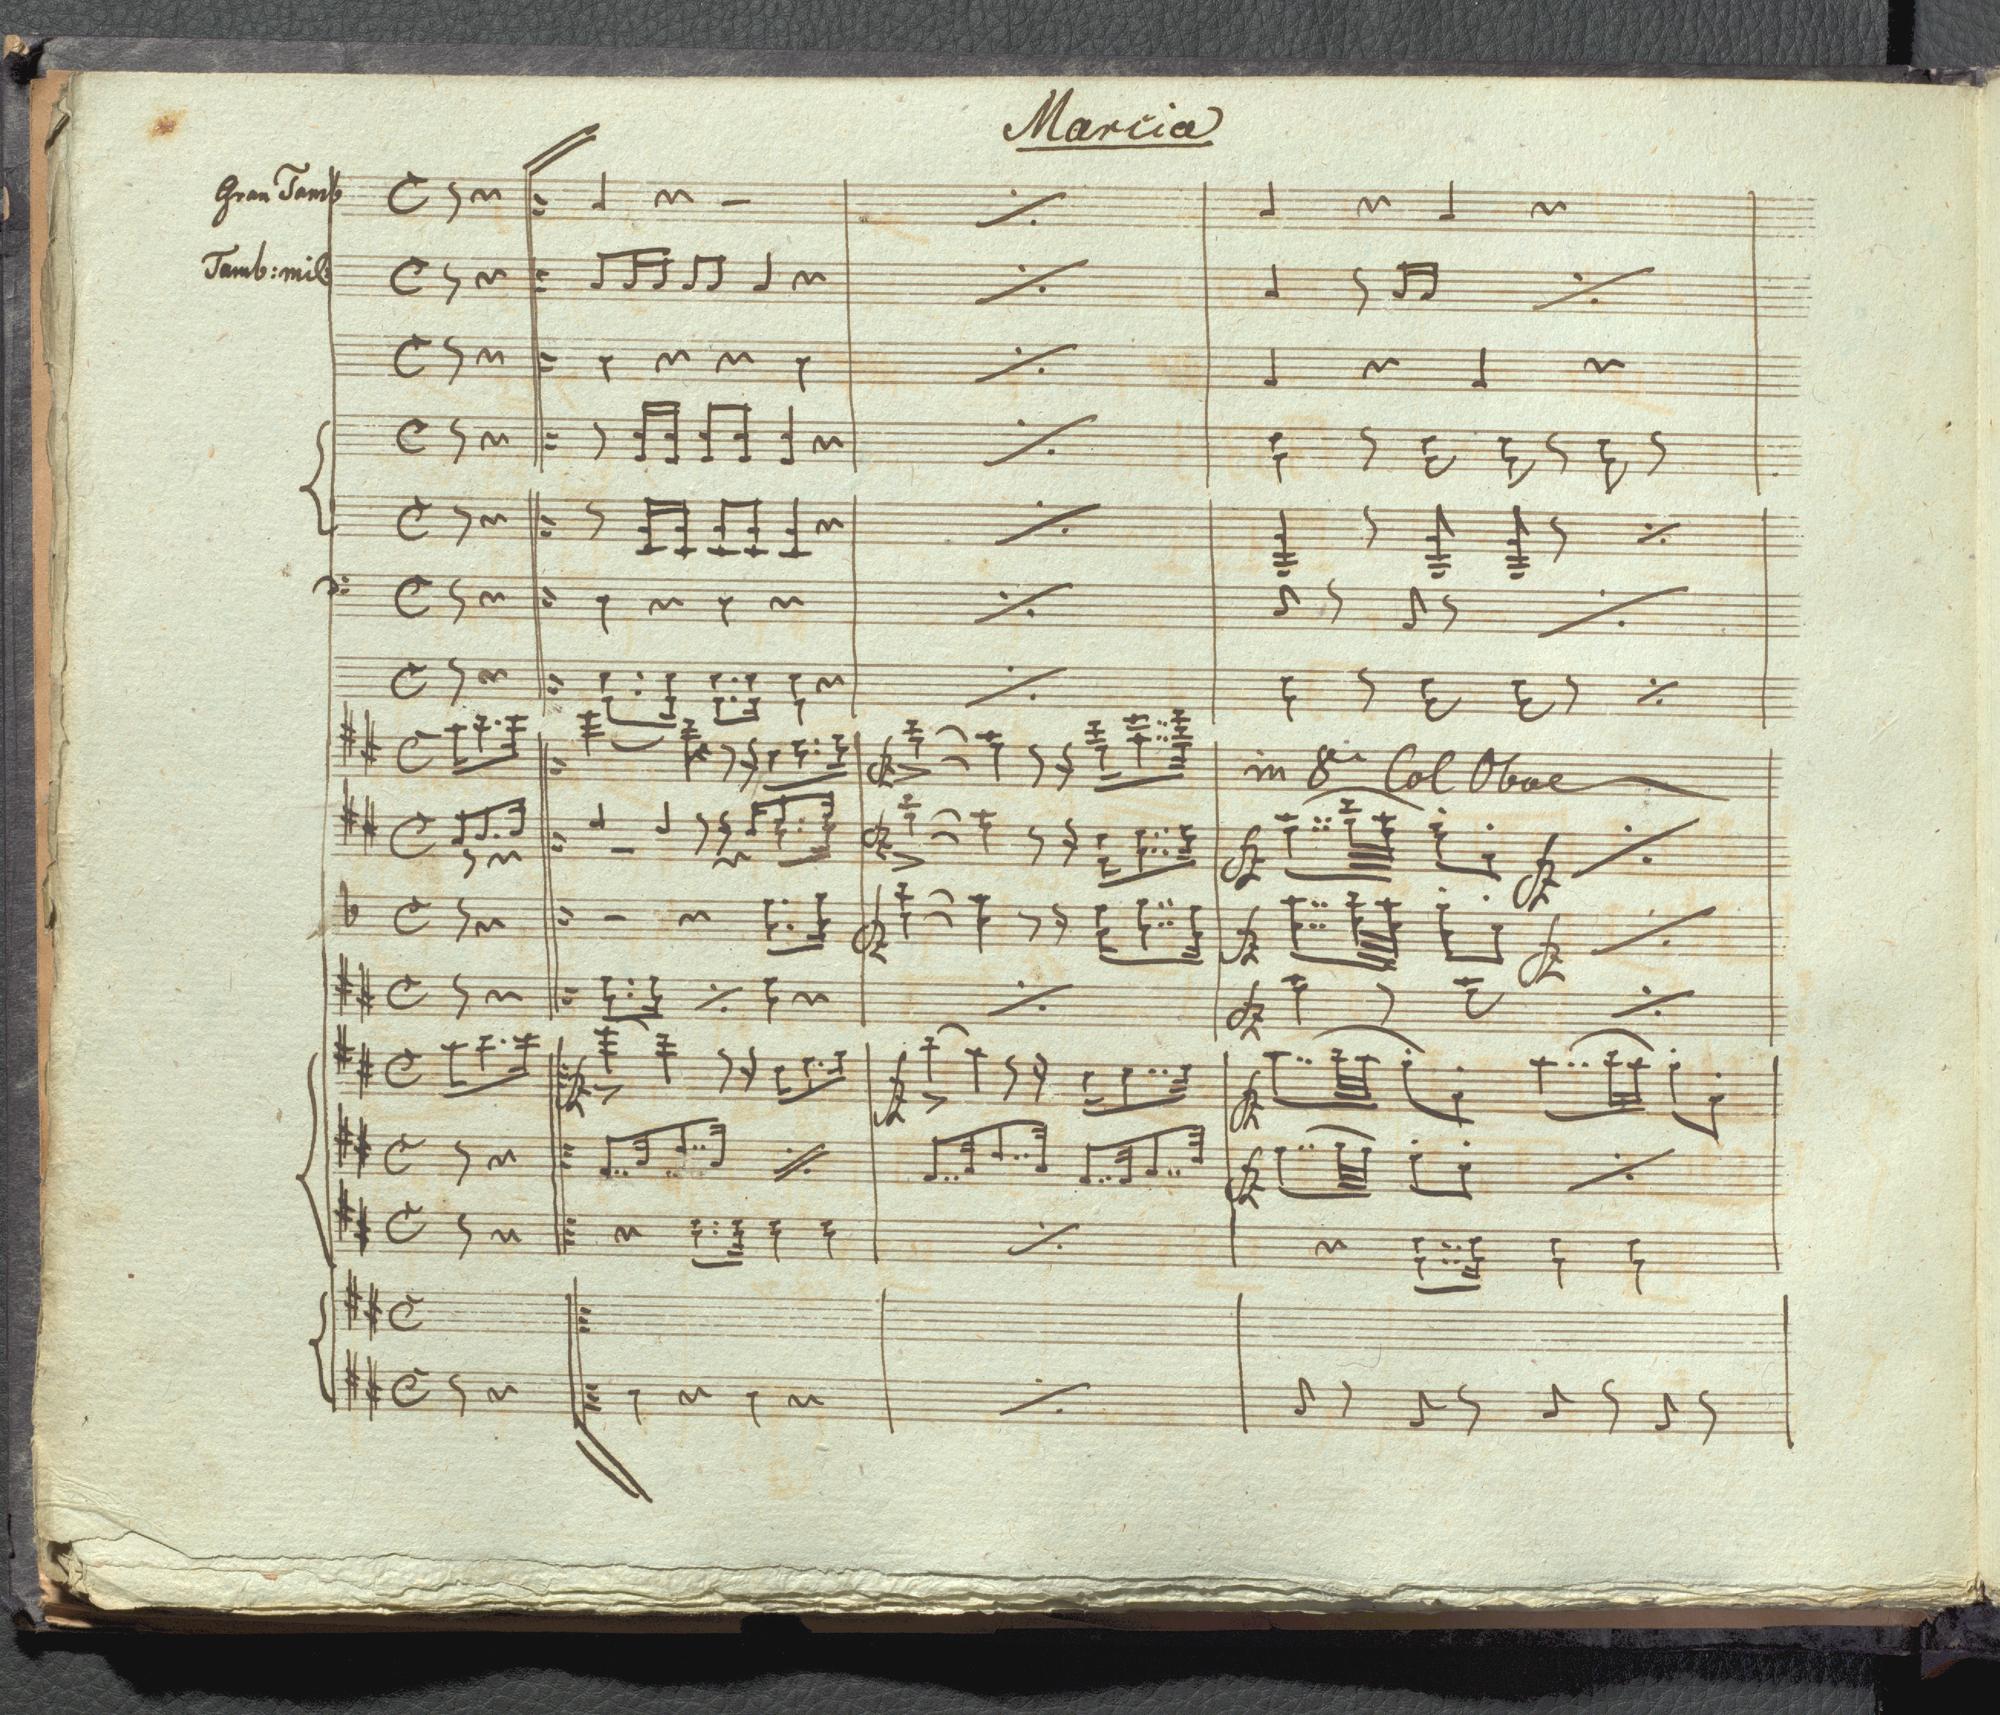 Marcia
Gran Tamb
Tamb: mil:
in 8va Col Oboe